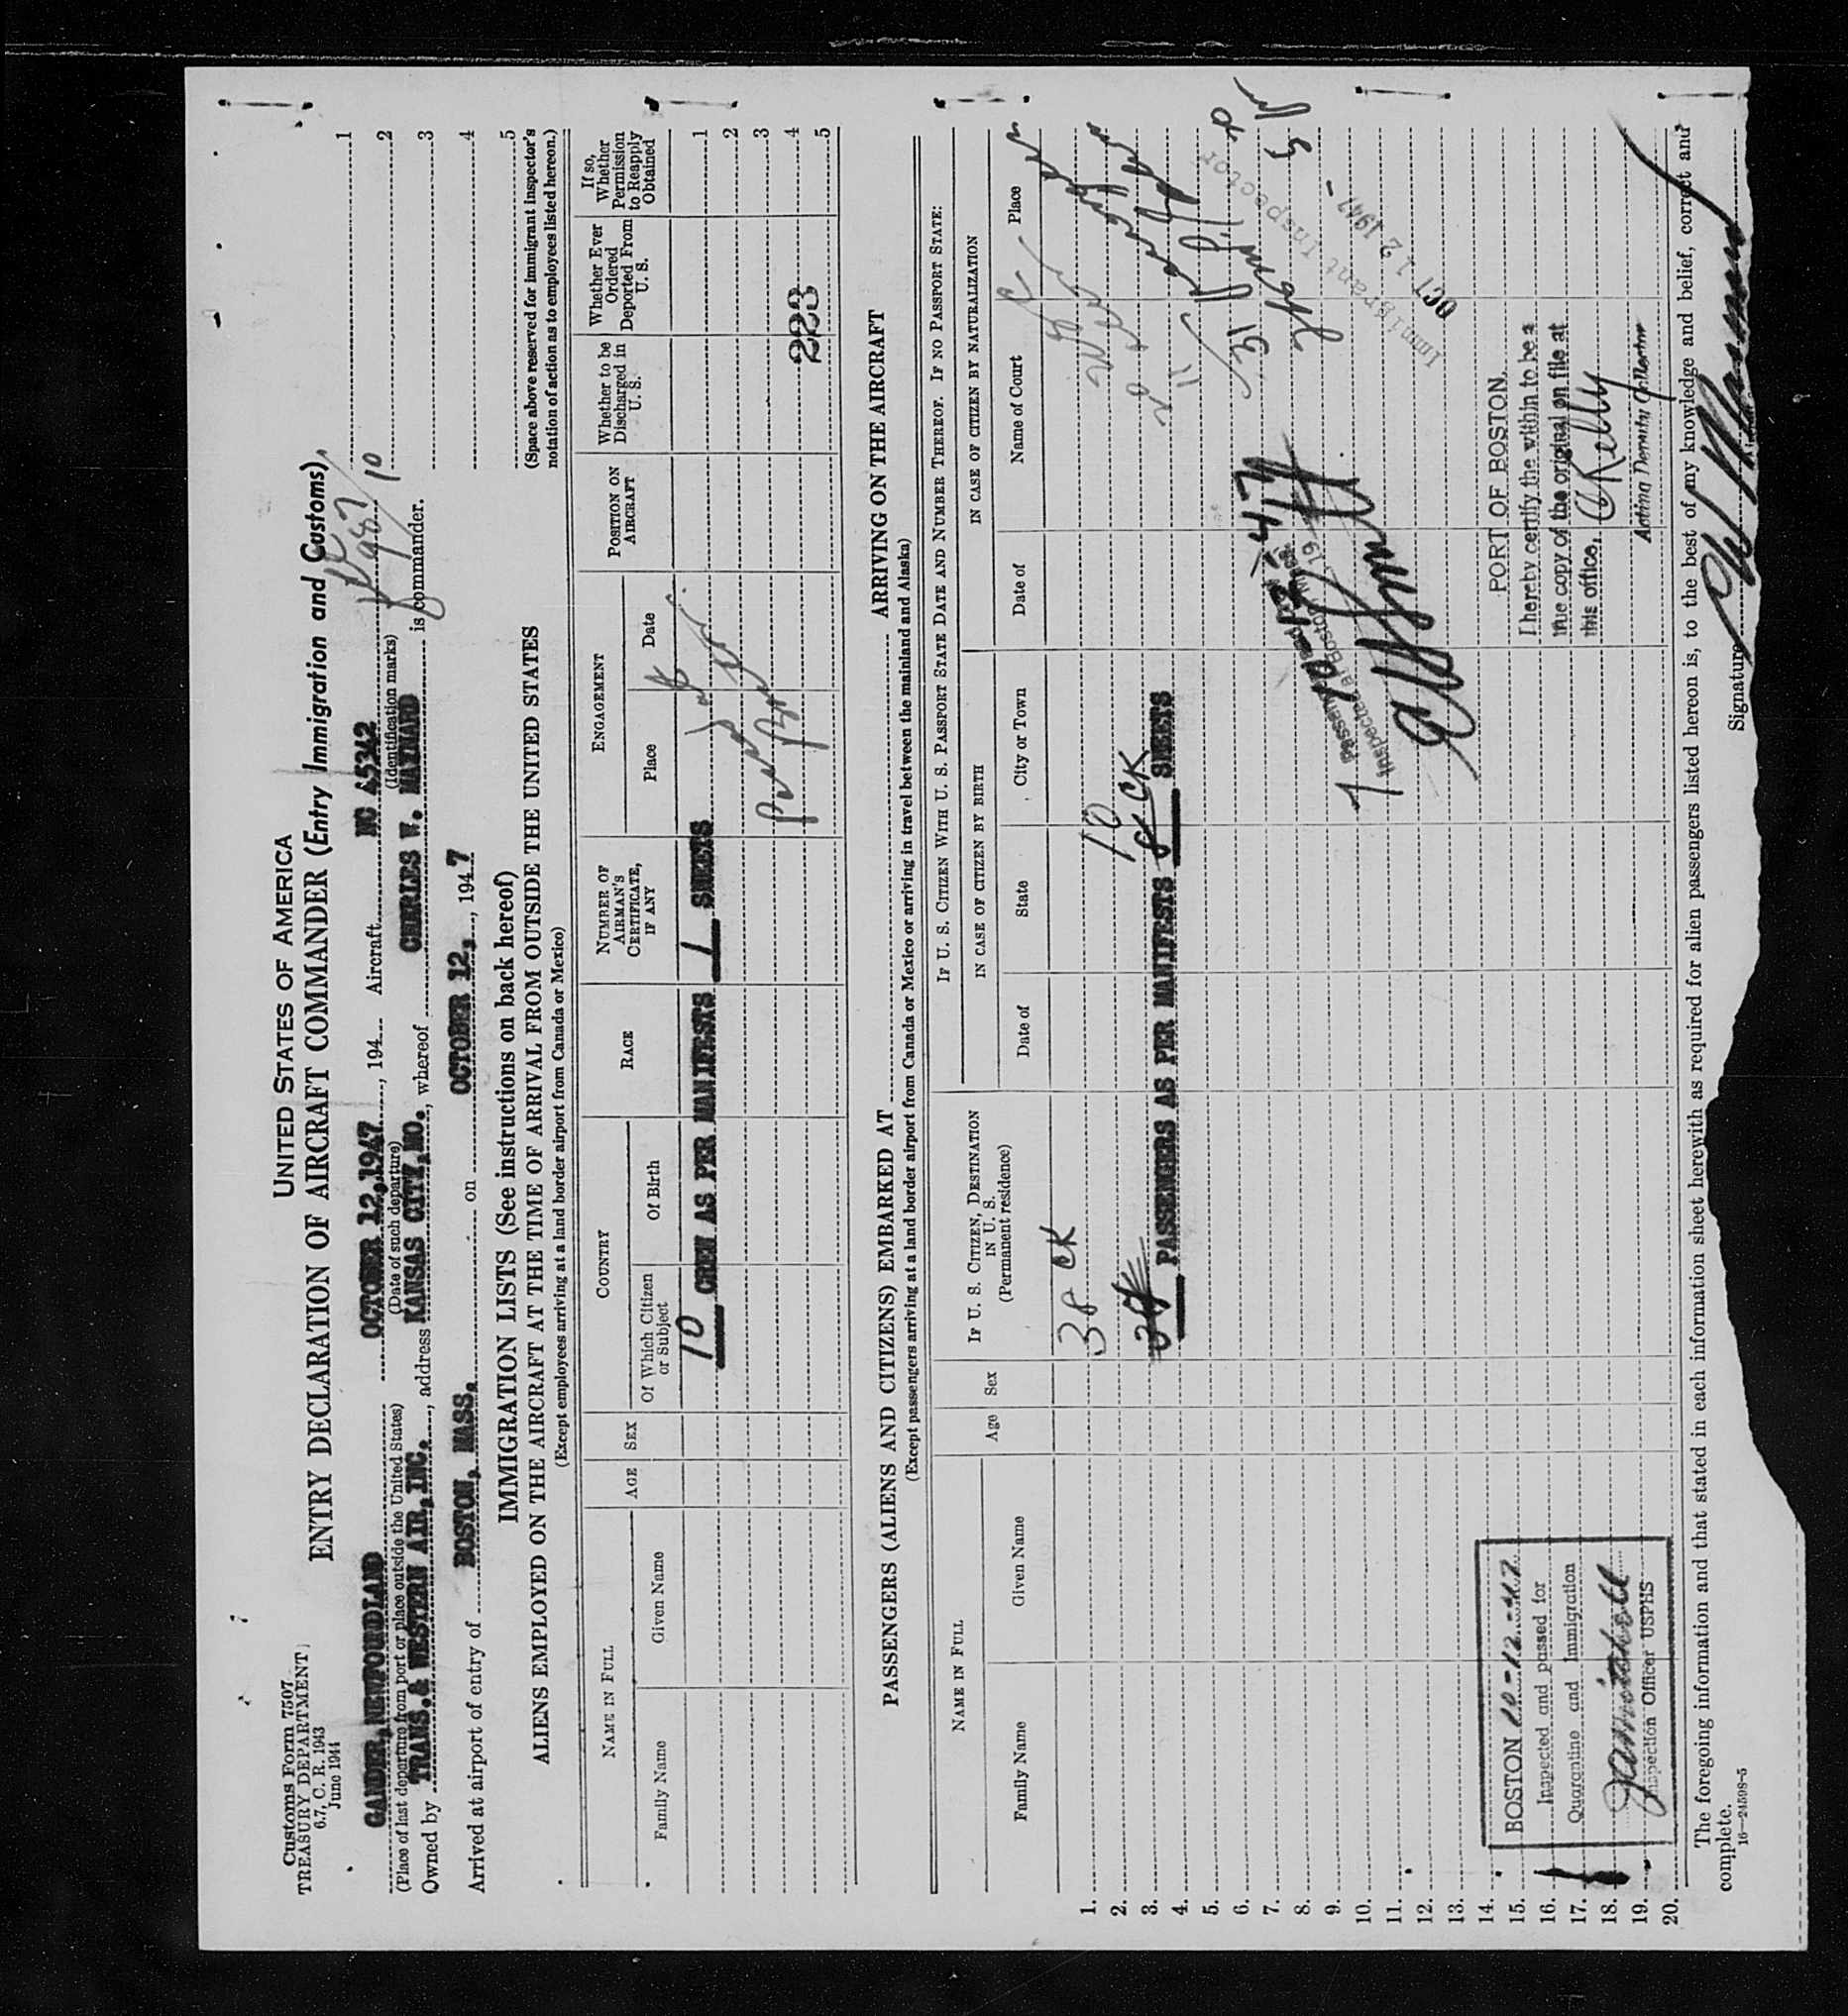 Customs Form 7507
TREASURY DEPARTMENT
6.7, C. R. 1943
June 1944
UNITED STATES OF AMERICA
ENTRY DECLARATION OF AIRCRAFT COMMANDER (Entry Immigration and Customs)
GANDER, NEWFOUNDLAND OCTOBER 12,1947, 194 Aircraft NC 45342
(Place of last departure from port or place outside the United States) (Date of such departure) (Identification marks)
Owned by TRANS.& WESTERN AIR,INC., address KANSAS CITY,MO., whereof CHERLES W. MAYNARD is commander.
Arrived at airport of entry of BOSTON, MASS. on OCTOBER 12, 1947
1
2
10
3
4
5
(Space above reserved for immigrant inspector's
notation of action as to employees listed hereon.)
IMMIGRATION LISTS (See instructions on back hereof)
ALIENS EMPLOYED ON THE AIRCRAFT AT THE TIME OF ARRIVAL FROM OUTSIDE THE UNITED STATES
(Except employees arriving at a land border airport from Canada or Mexico)
NAME IN FULL
Family Name
Given Name
AGE
SEX
COUNTRY
Of Which Citizen or Subject
Of Birth
RACE
NUMBER OF AIRMAN'S CERTIFICATE, IF ANY
ENGAGEMENT
Place
Date
POSITION ON AIRCRAFT
Whether to be Discharged in U. S.
Whether Ever Ordered Deported From U. S.
If so, Whether Permission to Reapply Obtained
10 CREW AS PER MANIFESTS 1 SHEETS
1
2
3
223
4
5
PASSENGERS (ALIENS AND CITIZENS) EMBARKED AT ARRIVING ON THE AIRCRAFT
(Except passengers arriving at a land border airport from Canada or Mexico or arriving in travel between the mainland and Alaska)
NAME IN FULL
Family Name
Given Name
Age
Sex
IF U. S. CITIZEN, DESTINATION IN U. S.
(Permanent residence)
IF U. S. CITIZEN WITH U. S. PASSPORT STATE DATE AND NUMBER THEREOF. IF NO PASSPORT STATE:
IN CASE OF CITIZEN BY BIRTH
Date of
State
City or Town
IN CASE OF CITIZEN BY NATURALIZATION
Date of
Name of Court
Place
1. 38 CK 10
2.
3. PASSENGERS AS PER MANIFESTS CK SHEETS
4.
5.
6.
7.
8.
9.
10.
11.
12.
13.
14.
15.
16.
17.
18.
19.
20.
Inspected at Boston, Mass.
Immigrant Inspector
OCT 12 1947
PORT OF BOSTON.
I hereby certify the within to be a
true copy of the original on file at
this office.
Kelly
Acting Deputy Collector
BOSTON 10-12-47
Inspected and passed for
Quarantine and Immigration
Inspection Officer USPHS
The foregoing information and that stated in each information sheet herewith as required for alien passengers listed hereon is, to the best of my knowledge and belief, correct and
complete.
16—24598-5
Signature